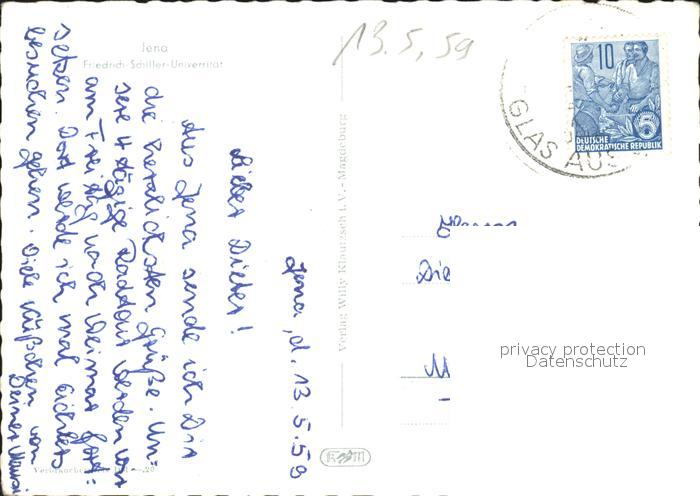 Jena
Friedrich-Schiller-Universität
13.5.59
10
DEUTSCHE
DEMOKRATISCHE REPUBLIK
5
GLAS AUS
Verlag Willy Klautzsch i.V. - Magdeburg
Jena, d. 13.5.59
Lieber Dieter!
Aus Jena sende ich Dir
die herzlichsten Grüße. Un-
sere 4 tägige Radtour werden wir
am Freitag nach Weimar fort-
setzen. Dort werde ich mal
besuchen gehen. Viele Küßchen von
Deiner
Die
privacy protection
Datenschutz